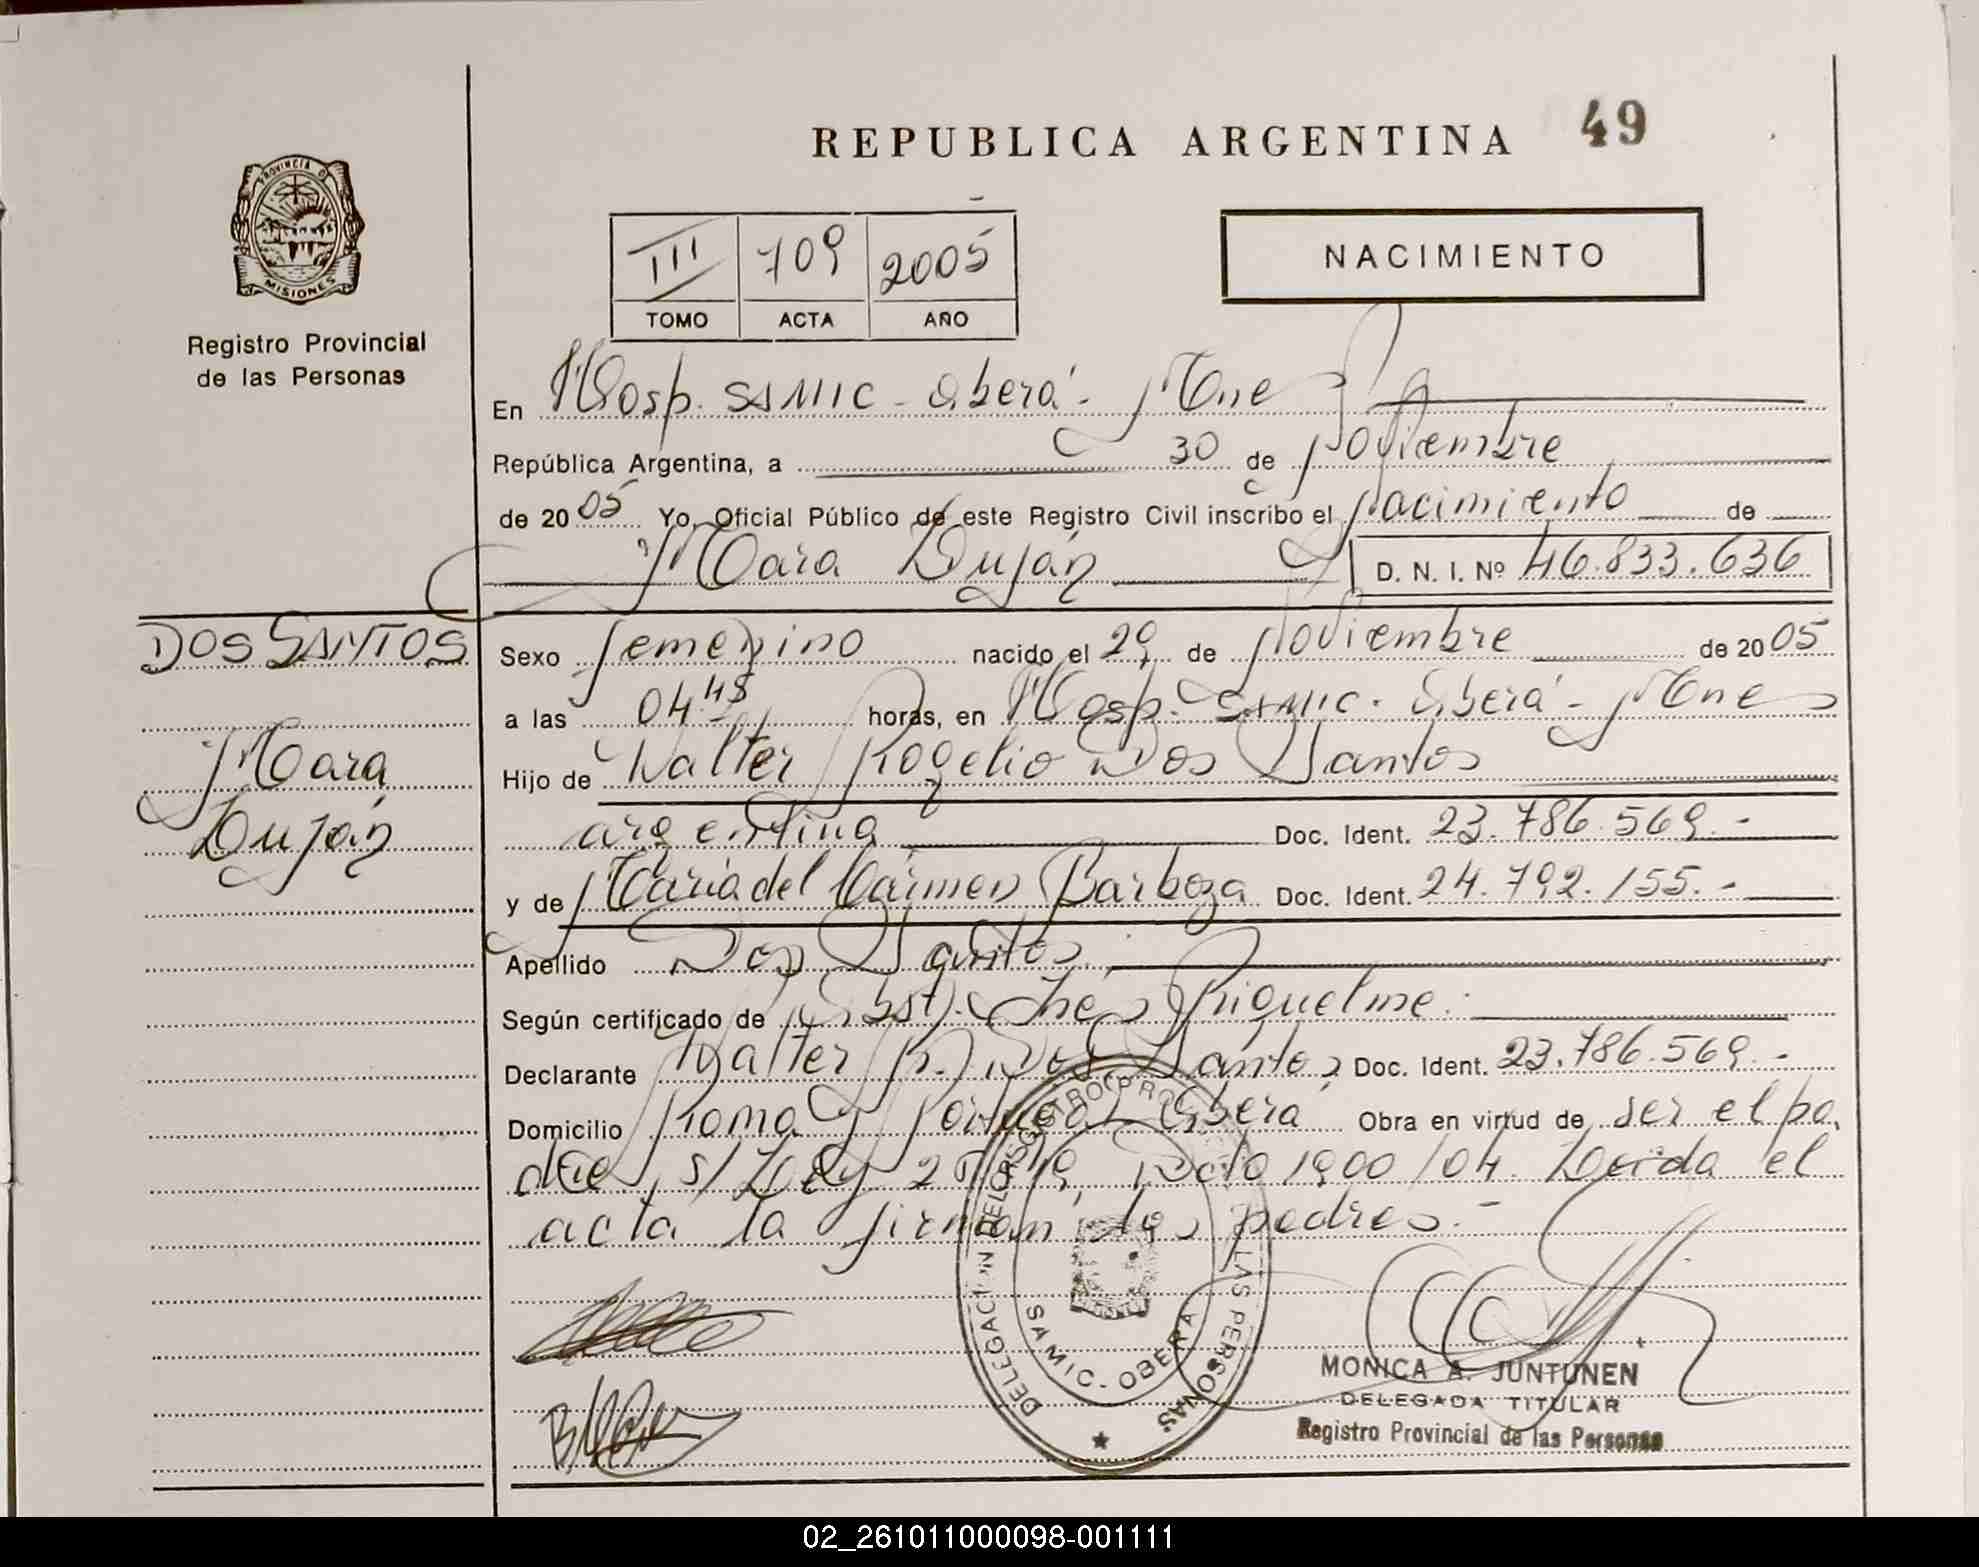 REPUBLICA ARGENTINA 49
PROVINCIA DE
MISIONES
Registro Provincial
de las Personas
III 709 2005
TOMO ACTA AÑO
NACIMIENTO
En Hosp. SAMIC - Oberá - Mnes
República Argentina, a 30 de Noviembre
de 2005 Yo, Oficial Público de este Registro Civil inscribo el Nacimiento de
Mara Luján D. N. I. Nº 46.833.636
DOS SANTOS
Mara
Luján
Sexo femenino nacido el 29 de Noviembre de 2005
a las 04 45 horas, en Hosp. SAMIC. Oberá - Mnes
Hijo de Walter Rogelio Dos Santos
argentina Doc. Ident. 23.786.569.-
y de María del Cármen Barboza Doc. Ident. 24.792.155.-
Apellido Dos Santos.
Según certificado de Obst. Inés Riquelme.
Declarante Walter R. Dos Santos Doc. Ident. 23.786.569.-
Domicilio Roma y Portugal Oberá Obra en virtud de ser el pa
dre, s/Ley Dcto 1900/04. Leída el
acta la firman los padres.-
DELEGACION DEL REGISTRO PROVINCIAL DE LAS PERSONAS
SAMIC - OBERA
MONICA A. JUNTUNEN
DELEGADA TITULAR
Registro Provincial de las Personas
02_261011000098-001111